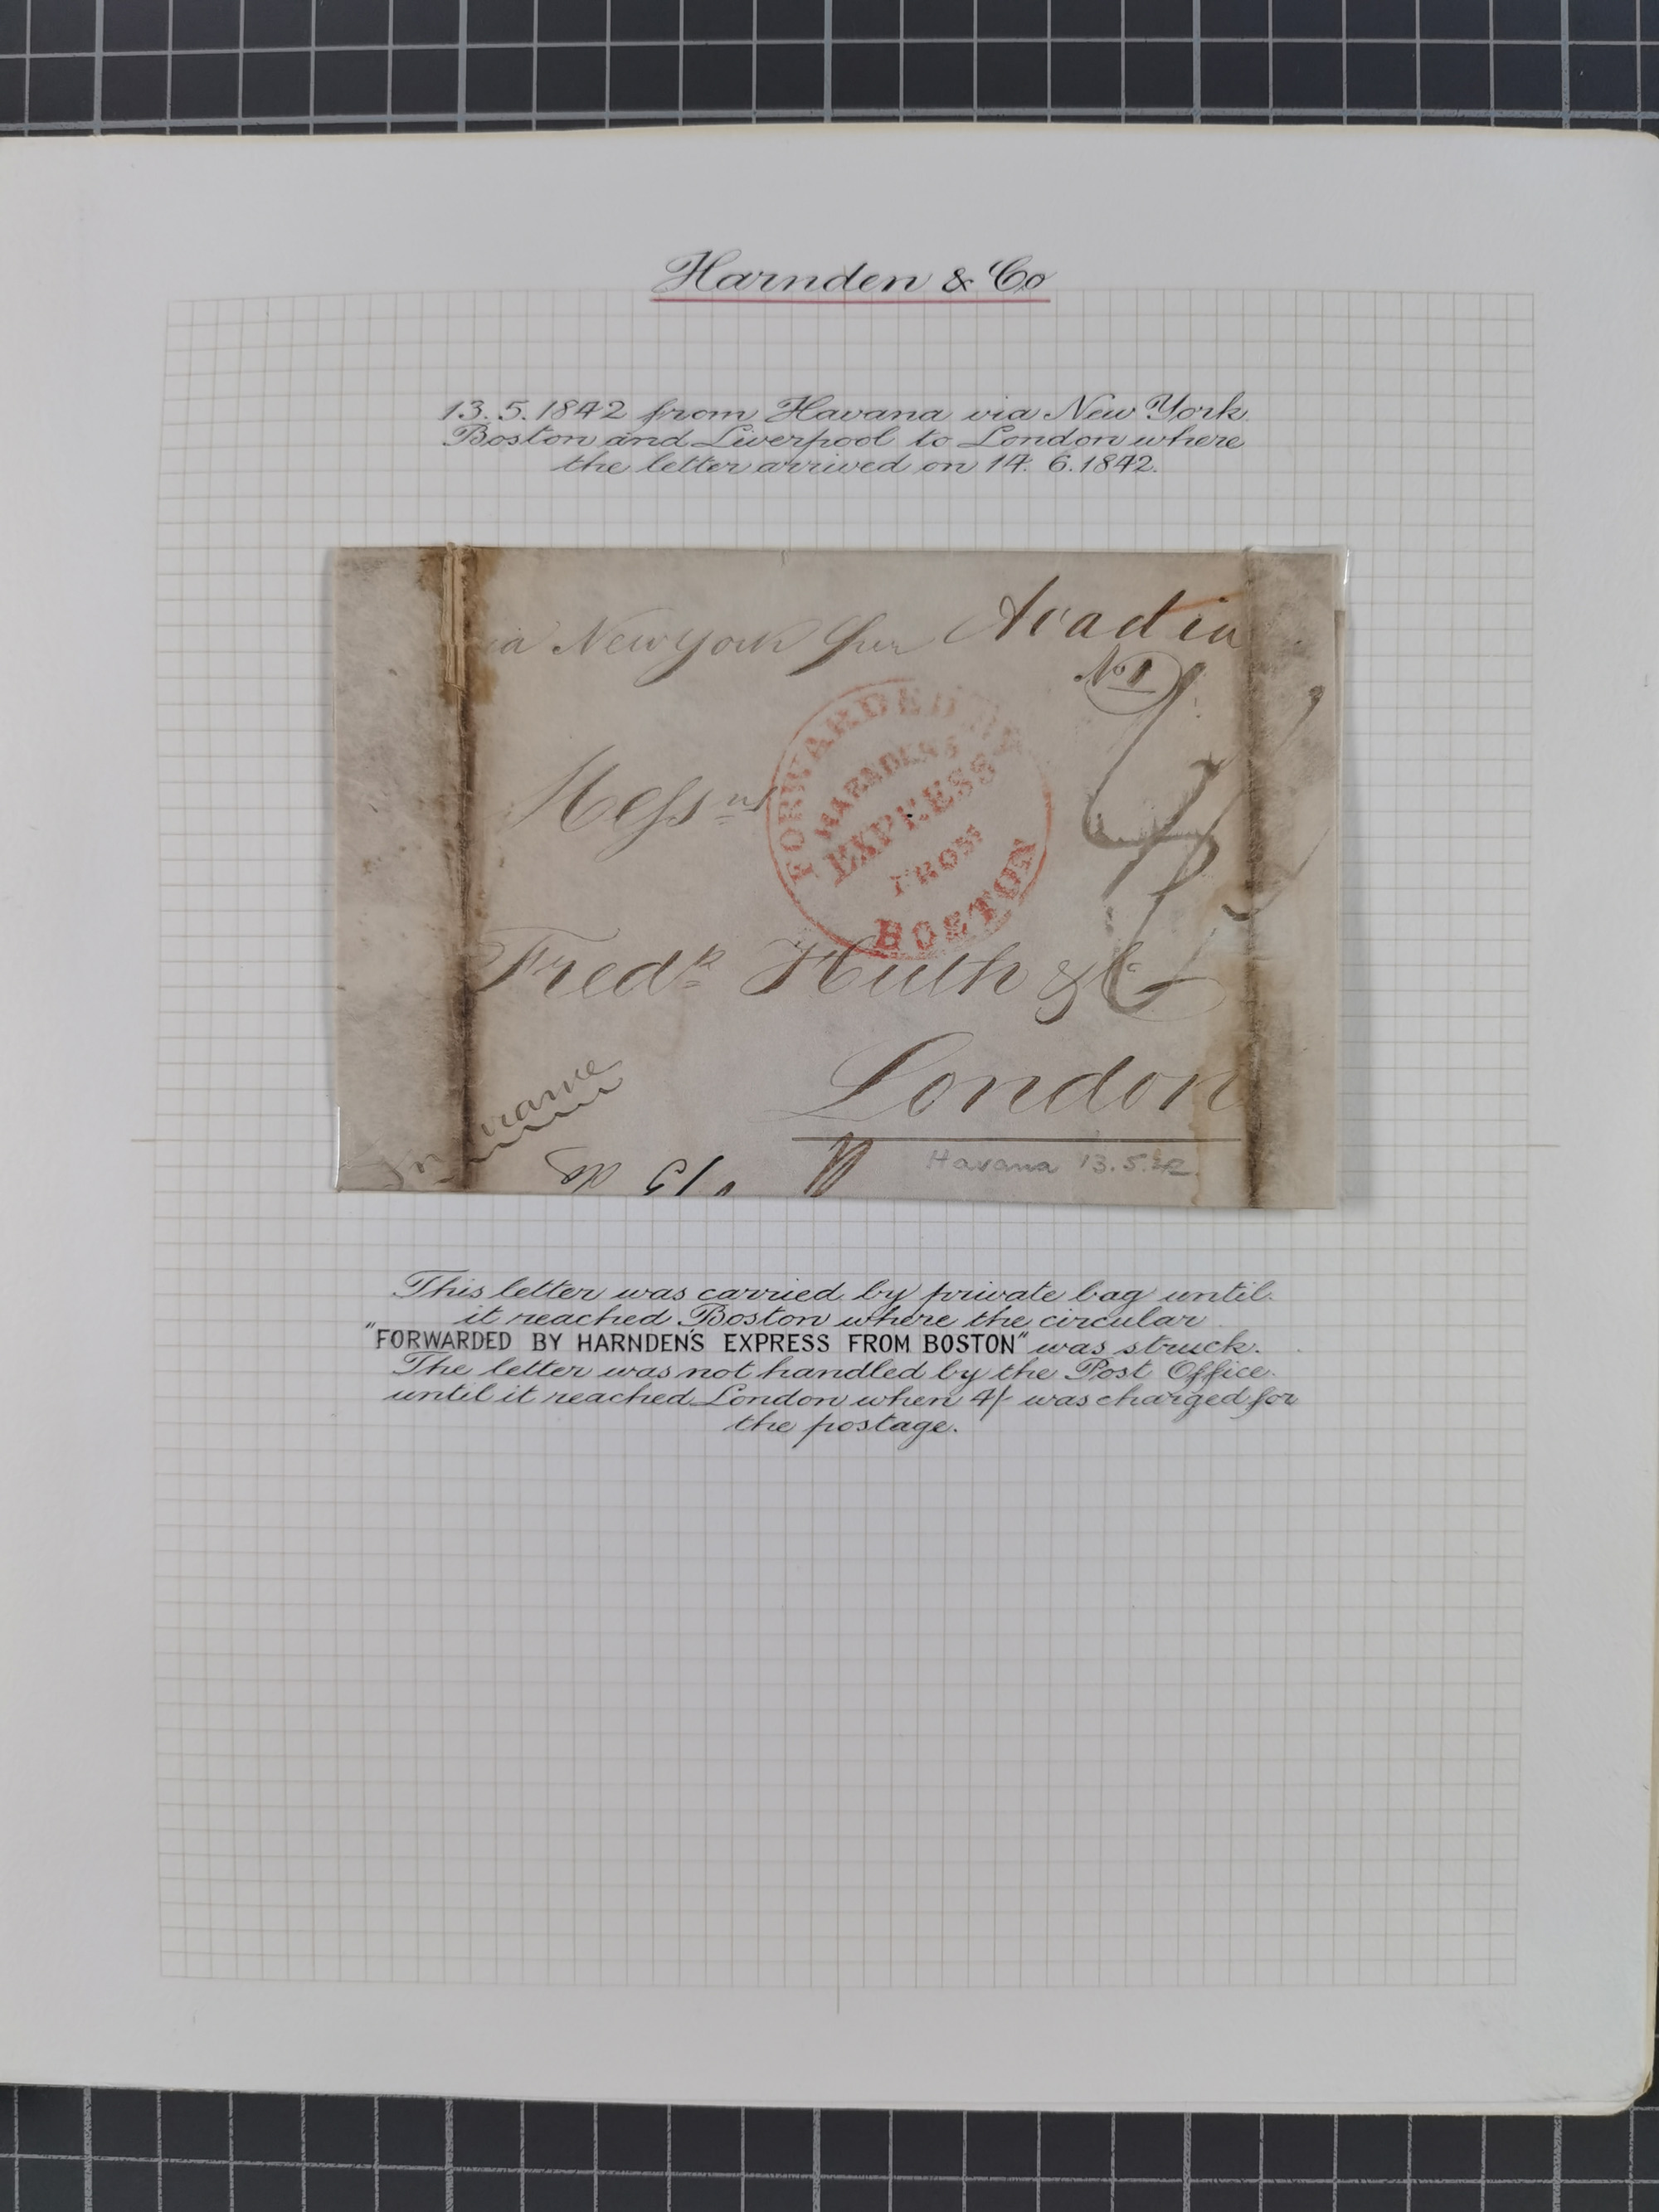 Harnden & Co
13.5.1842 from Havana via New York
Boston and Liverpool to London where
the letter arrived on 14.6.1842.
ia New York per Acadia
No 1
Messrs
FORWARDED BY
HARNDEN'S
EXPRESS
FROM
BOSTON
Fredk Huth & Co
London
Havana 13.5.42.
This letter was carried by private bag until
it reached Boston where the circular
"FORWARDED BY HARNDEN'S EXPRESS FROM BOSTON" was struck.
The letter was not handled by the Post Office
until it reached London when 4/- was charged for
the postage.